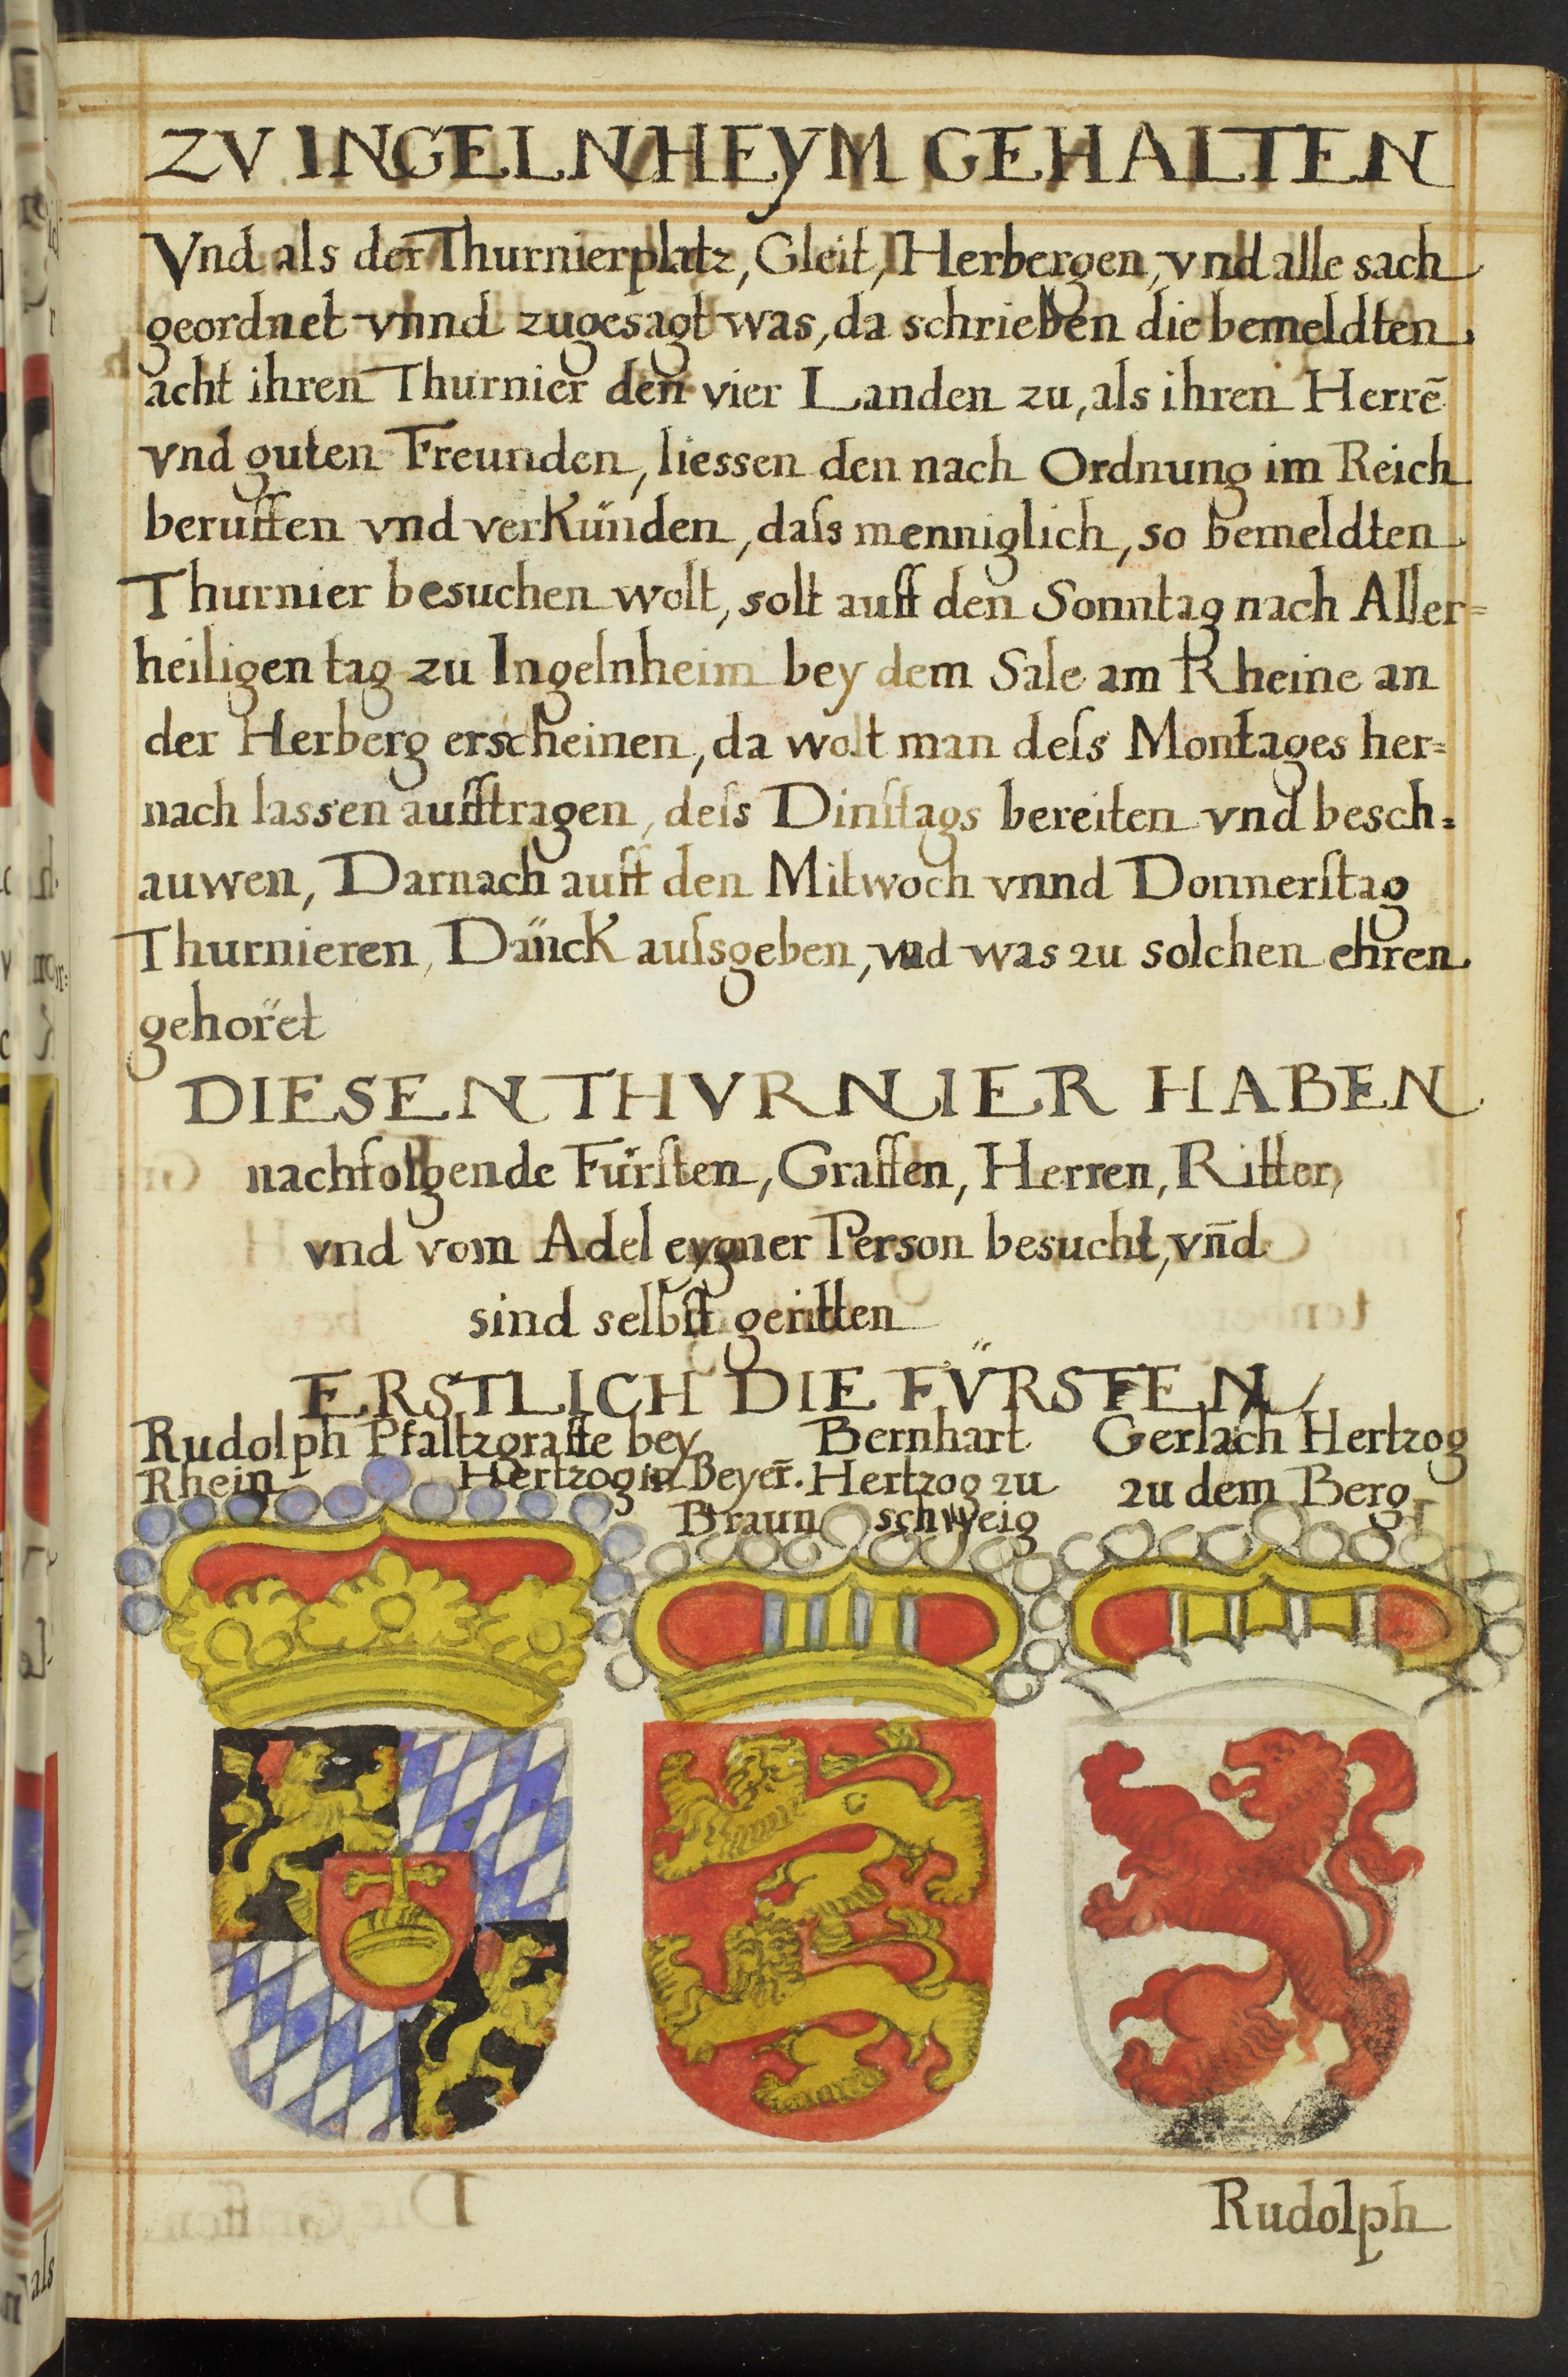 ZV INGELNHEYM GEHALTEN
Vnd als der Thurnierplatz, Gleit, Herbergen, vnd alle sach
geordnet vnnd zugesagt was, da schrieben die bemeldten
acht ihren Thurnier den vier Landen zu, als ihren Herrē
vnd guten Freunden, liessen den nach Ordnung im Reich
beruffen vnd verkünden, daſs menniglich, so bemeldten
Thurnier besuchen wolt, solt auff den Sonntag nach Aller=
heiligen tag zu Ingelnheim bey dem Sale am Rheine an
der Herberg erscheinen, da wolt man deſs Montages her=
nach lassen aufftragen, deſs Dinſtags bereiten vnd besch=
auwen, Darnach auff den Mitwoch vnnd Donnerſtag
Thurnieren, Dänck auſsgeben, vnd was zu solchen ehren
gehöret
DIESEN THVRNIER HABEN
nachfolgende Fürſten, Graffen, Herren, Ritter,
vnd vom Adel eygner Person besucht, vn̄d
sind selbſt geritten
ERSTLICH DIE FV̈RSTEN
Rudolph Pfaltzgraffe bey
Rhein Hertzog in Beyer̄.
Bernhart
Hertzog zu
Braunschweig
Gerlach Hertzog
zu dem Berg
Rudolph
als